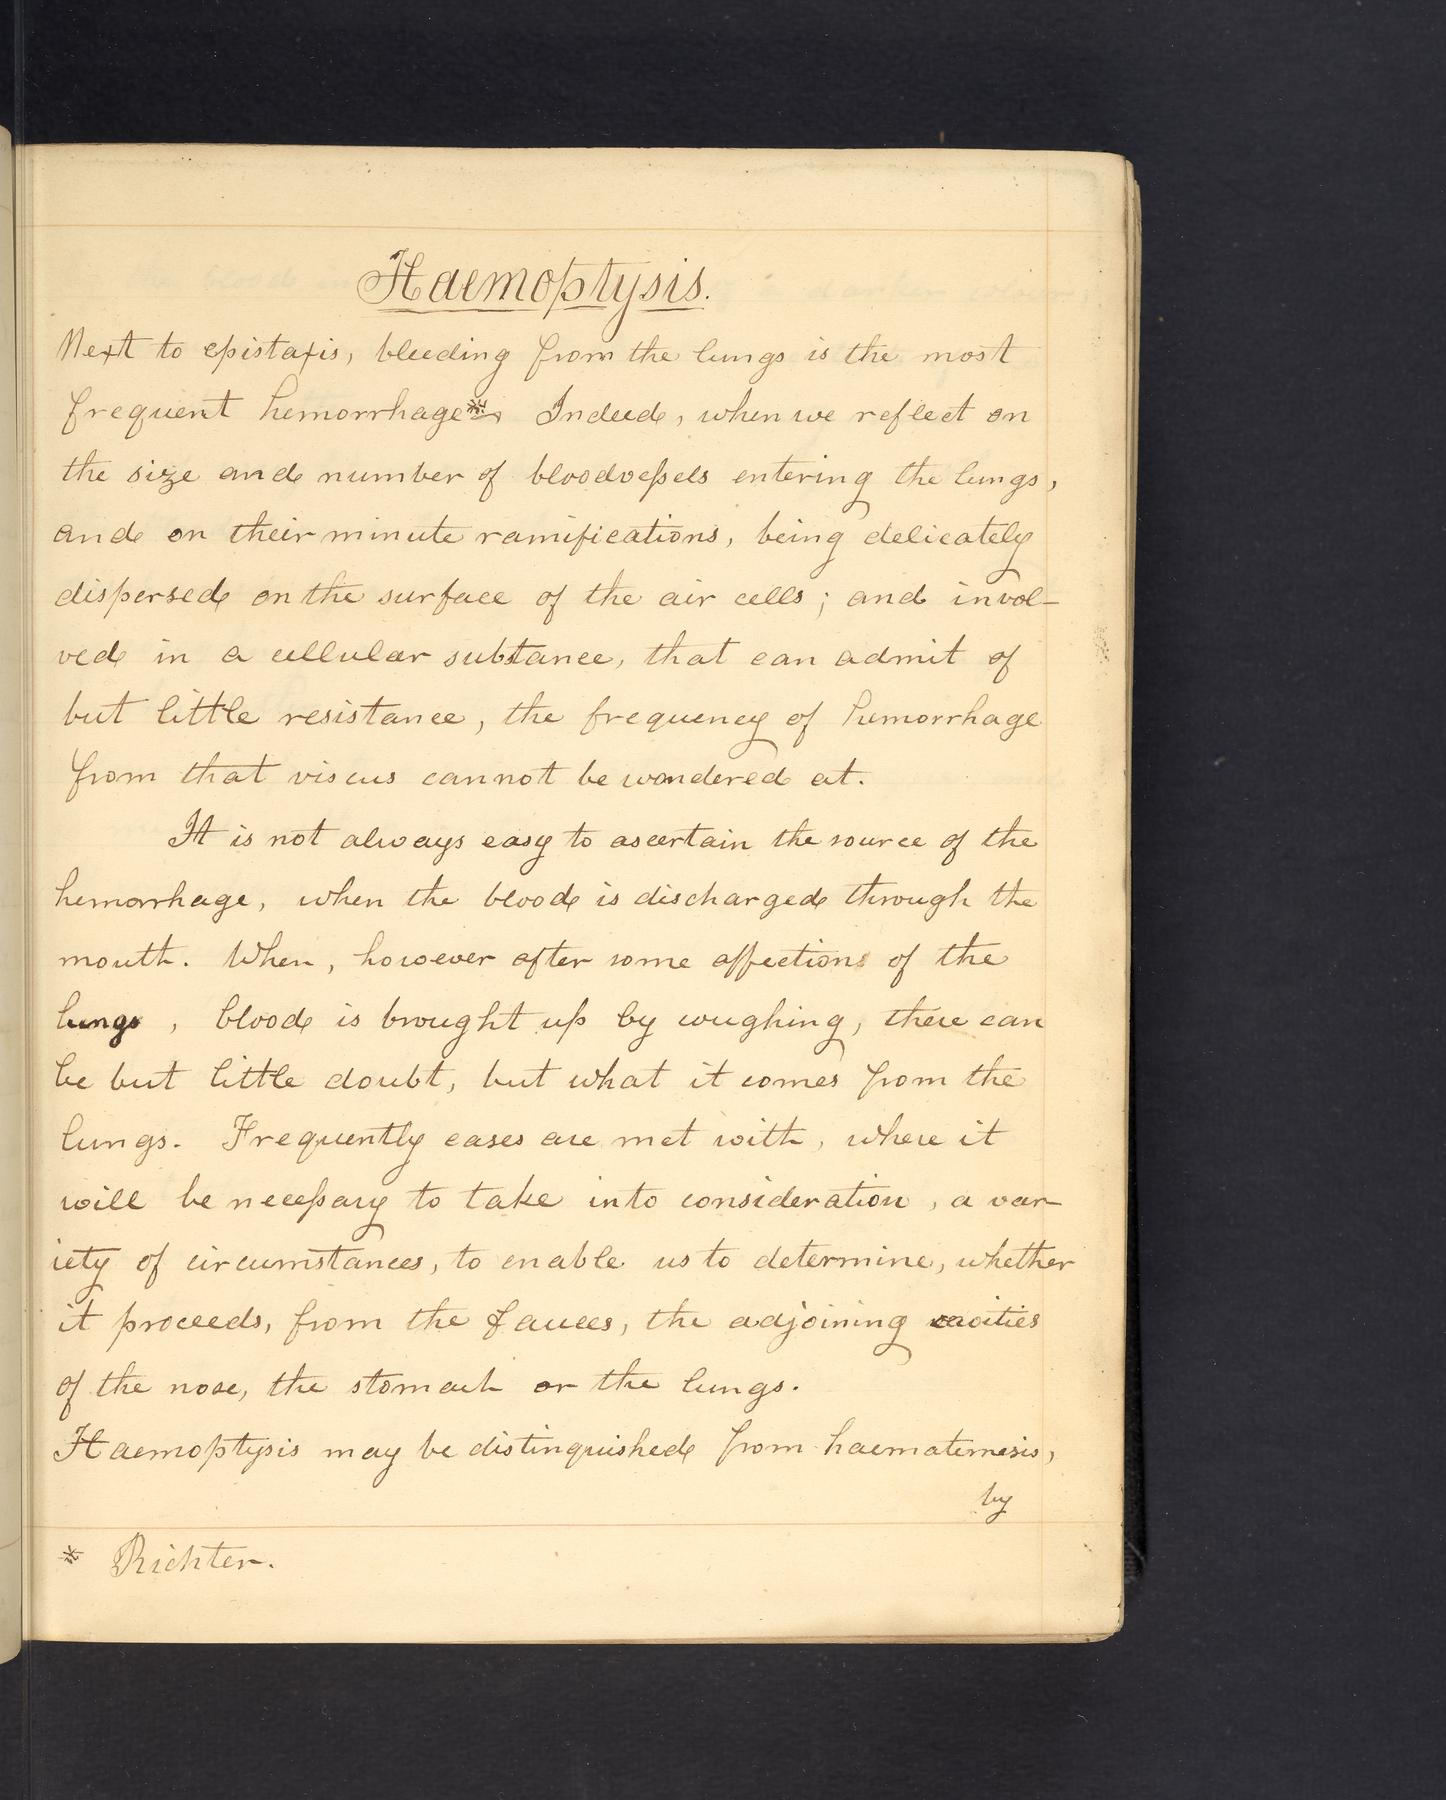 Haemoptysis.
Next to epistaxis, bleeding from the lungs is the most
frequent hemorrhage*. Indeed, when we reflect on
the size and number of bloodvessels entering the lungs,
and on their minute ramifications, being delicately
dispersed on the surface of the air cells; and invol-
ved in a cellular substance, that can admit of
but little resistance, the frequency of hemorrhage
from that viscus cannot be wondered at.
It is not always easy to ascertain the source of the
hemorrhage, when the blood is discharged through the
mouth. When, however after some affections of the
lungs, blood is brought up by coughing, there can
be but little doubt, but what it comes from the
lungs. Frequently cases are met with, where it
will be necessary to take into consideration, a var-
iety of circumstances, to enable us to determine, whether
it proceeds, from the fauces, the adjoining cavities
of the nose, the stomach or the lungs.
Haemoptysis may be distinguished from haematemesis,
by
* Richter.